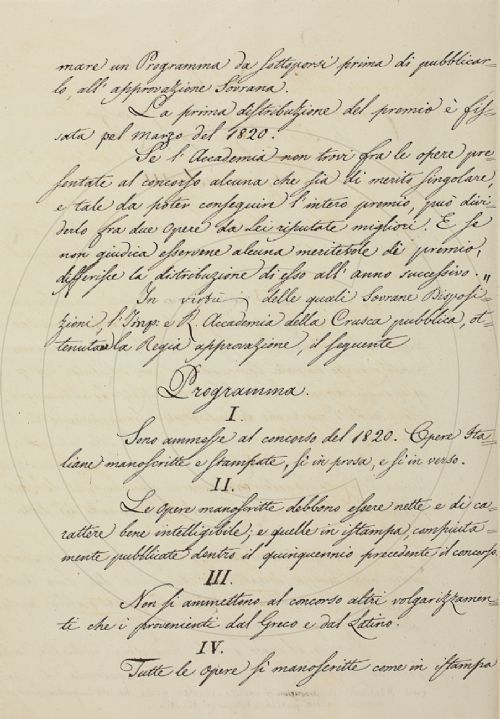 mare un Programma da sottoporsi prima di pubblicar=
lo all'approvazione Sovrana.
La prima distribuzione del premio è fis=
sata pel marzo del 1820.
Se l'Accademia non trovi fra le opere pre=
sentate al concorso alcuna che sia di merito singolare
e tale da poter conseguire l'intero premio, può divi=
derlo fra due Opere da Lei riputate migliori. E se
non giudica esservene alcuna meritevole di premio,
differisce la distribuzione di esso all'anno successivo. "
In virtù delle quali Sovrane Disposi=
zioni, l'Imp. e R. Accademia della Crusca pubblica, ot=
tenutane la Regia approvazione, il seguente
Programma.
I.
Sono ammesse al concorso del 1820. Opere Ita=
liane manoscritte e stampate, sì in prosa, e sì in verso.
II.
Le Opere manoscritte debbono essere nette e di ca=
rattere bene intelligibile; e quelle in istampa, compiuta=
mente pubblicate dentro il quinquennio precedente il concorso.
III.
Non si ammettono al concorso altri volgarizzamen=
ti che i provenienti dal Greco e dal Latino.
IV.
Tutte le Opere sì manoscritte come in istampa